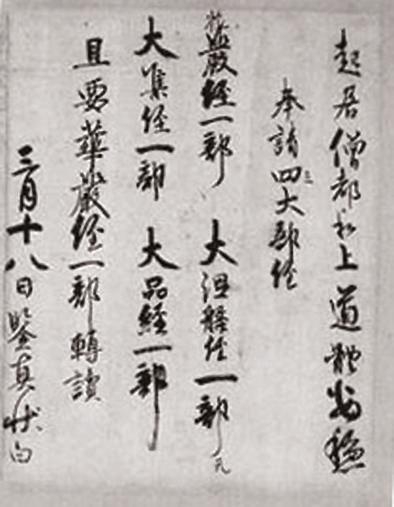 起居僧都和上道體安穩
奉請四大部経
花嚴経一部 大涅槃経一部
大集経一部 大品経一部
且要華嚴経一部轉讀
三月十八日鑒真状白